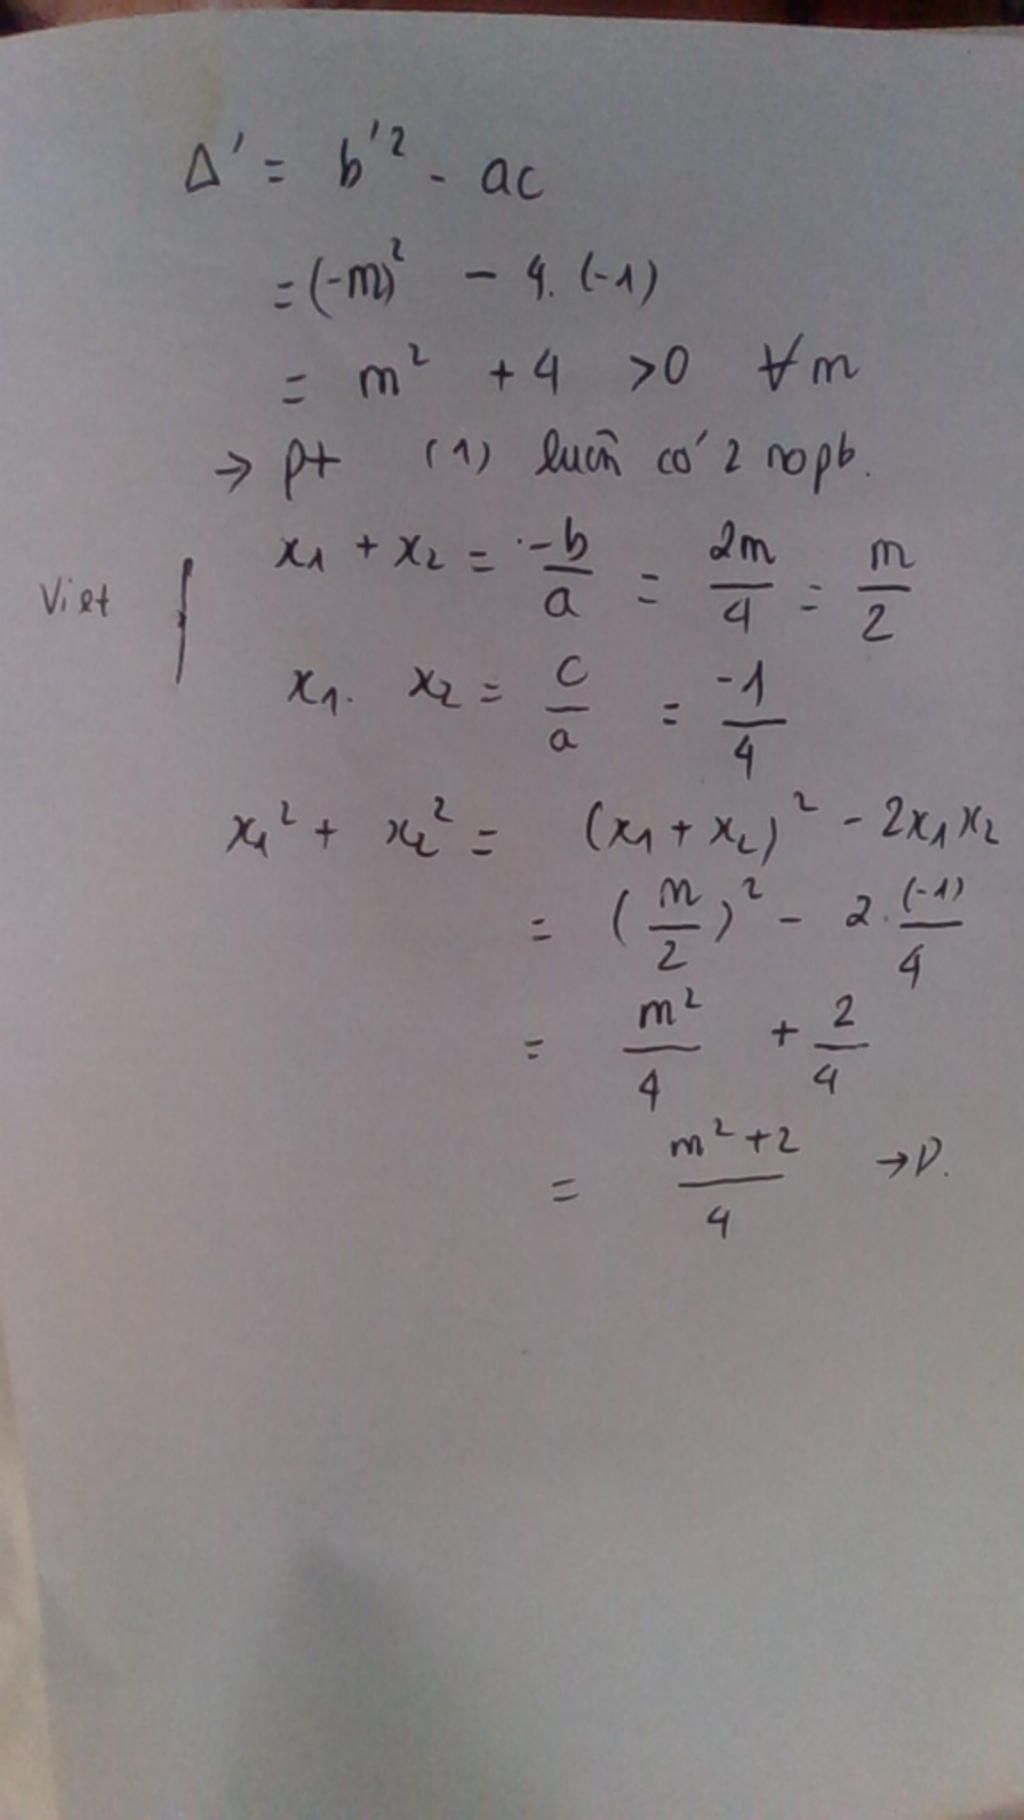 Δ' = b'² - ac
= (-m)² - 4. (-1)
= m² + 4 >0 ∀m
→ pt (1) luôn có 2 nopb.
Viet { x₁ + x₂ = -b/a = 2m/4 = m/2
x₁. x₂ = c/a = -1/4
x₁² + x₂² = (x₁ + x₂)² - 2x₁x₂
= (m/2)² - 2. (-1)/4
= m²/4 + 2/4
= m²+2/4 → D.